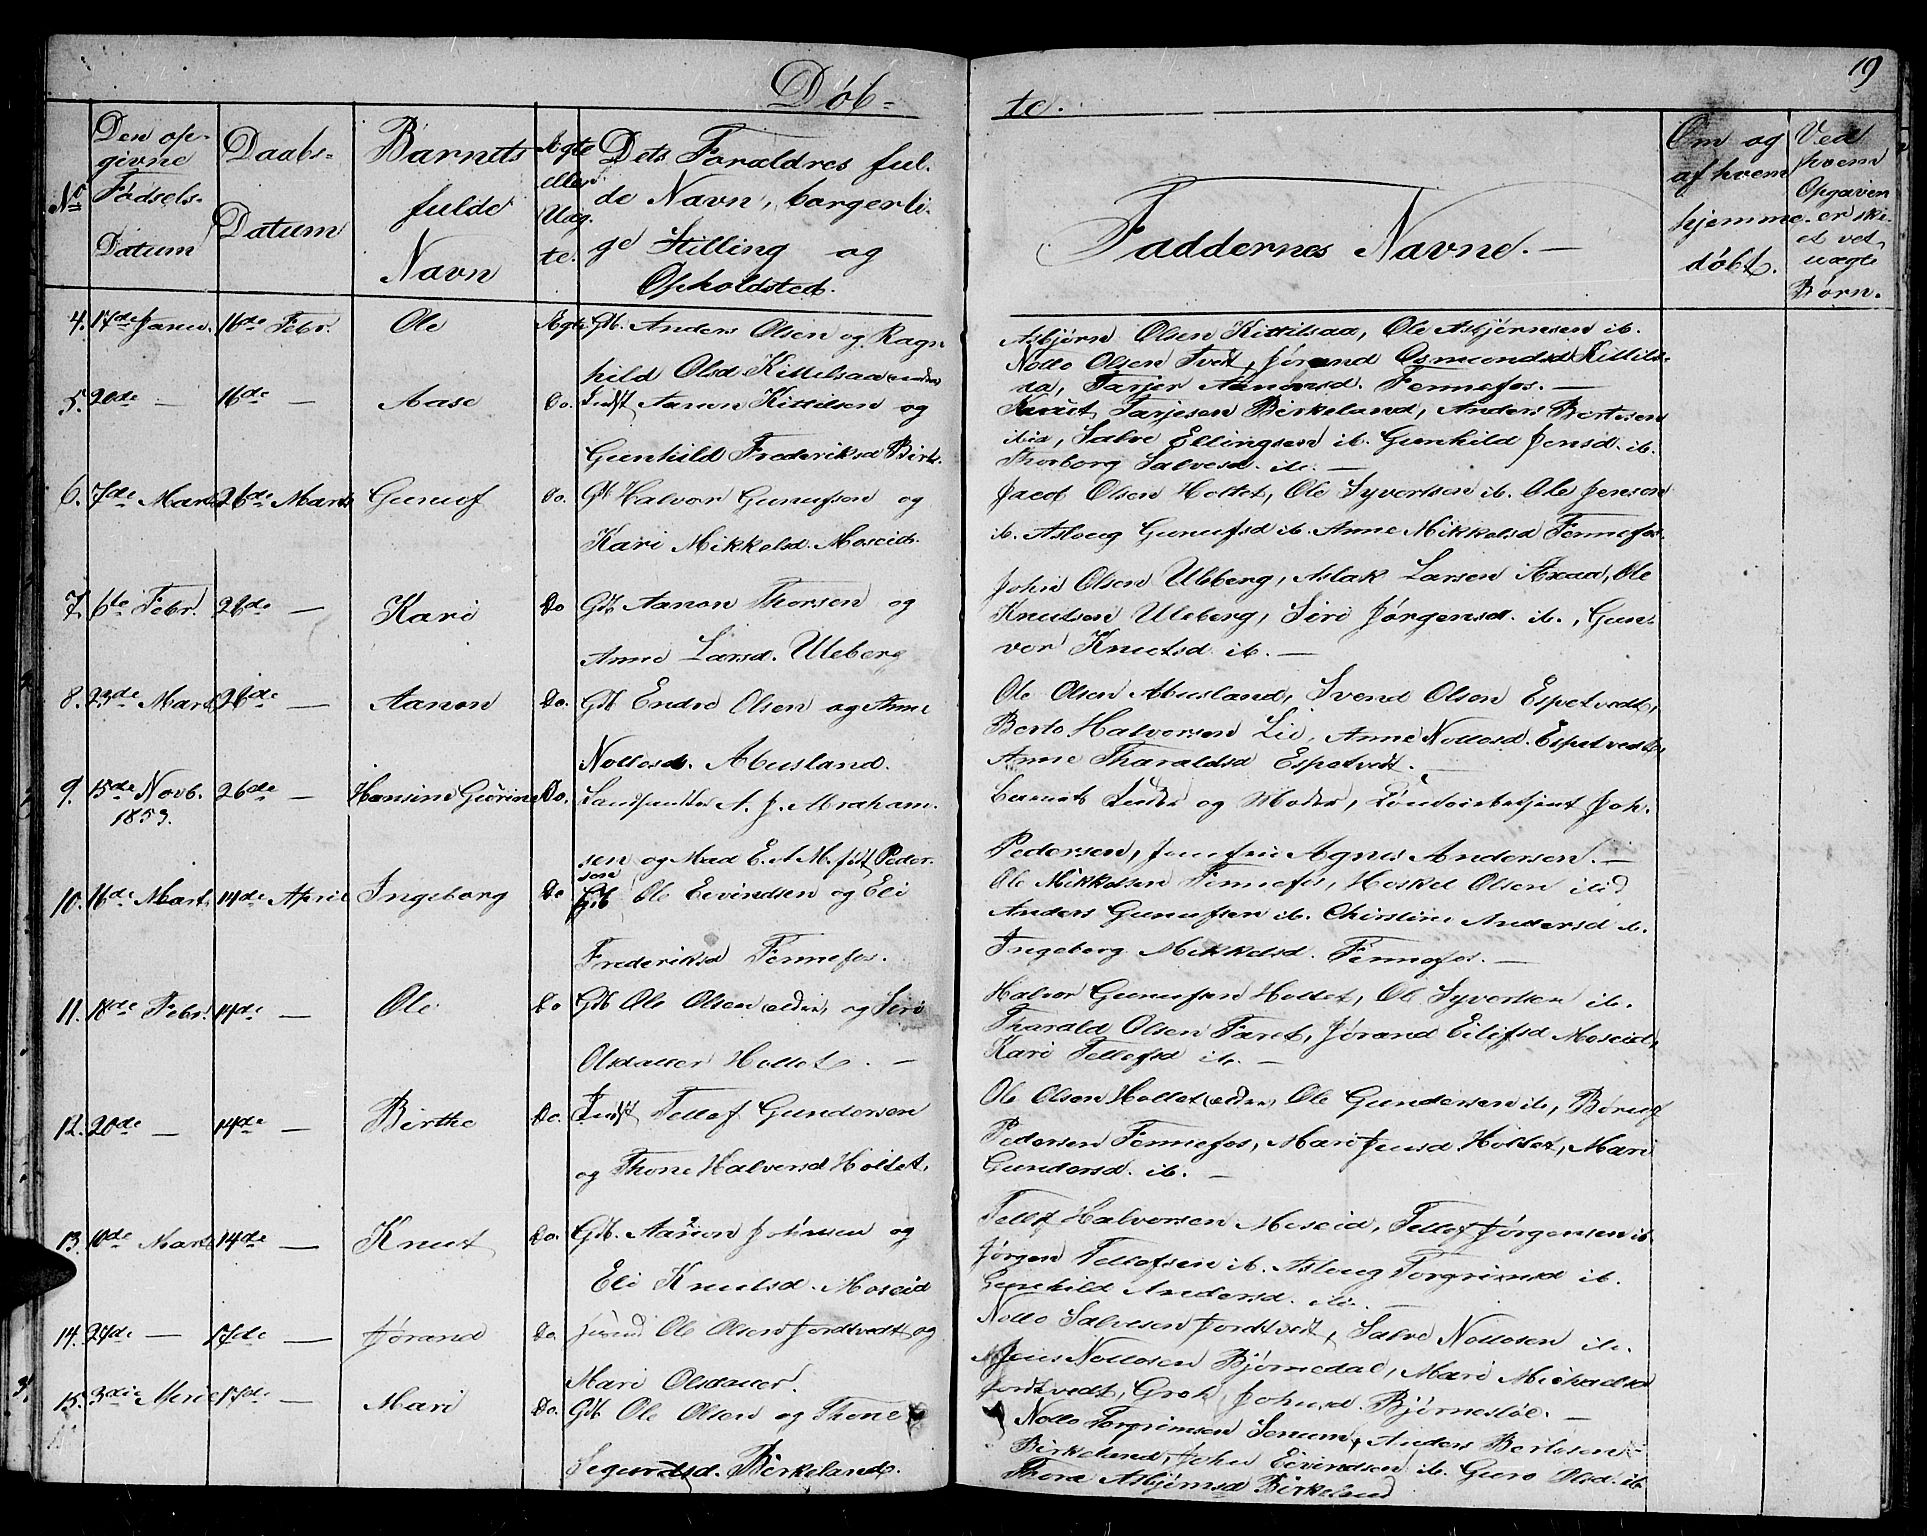 19
Döb-
te.
No
Den op-
givne
Fødsels-
Datum
Daabs-
Datum
Barnets
fulde
Navn
Ægte
eller
Uæg-
te.
Dets Forældres ful-
de Navn, borgerli-
ge Stilling og
Opholdsted.
Faddernes Navne. —
Om og
af hvem
hjemme-
døbt.
Ved
hvem
Opgaven
er ske-
et ved
uægte
Børn.
4. 17de Janu. 16de Febr. Ole Ægte Gb. Anders Olsen og Ragn-
hild Olsd Kittelsaa
Asbjørn Olsen Kittilsaa, Ole Asbjørnsen ib.
Notto Olsen Tveit, Jørand Osmundsd Kittils-
aa, Tarjer Aanonsd. Fennefos. —
5. 20de — 16de — Aase Do. Indst Aanon Kittilsen og
Gunhild Frederiksd Birk.
Knut Tarjesen Birkeland, Anders Bertesen
ibid, Salve Ellingsen ib. Gunhild Jensd. ib.
Thorborg Salvesd. ib. —
6. 7de Marts 26de Marts Gunuf Do. Gb Halvor Gunufsen og
Kari Mikkelsd. Moseid.
Jacob Olsen Holtet, Ole Syvertsen ib. Ole Jensen
ib. Asloug Gunufsd ib. Anne Mikkelsd Fennefos.
7. 6te Febr. 26de — Kari Do Gb Aanon Thorsen og
Anne Larsd. Uleberg
John Olsen Uleberg, Aslak Larsen Araa, Ole
Knutsen Uleberg, Siri Jørgensd. ib., Gun-
vor Knutsd ib. —
8. 23de Marts 26de — Aanon Do. Gb Endre Olsen og Anne
Nottosd. Abusland.
Ole Olsen Abusland, Svend Olsen Espetvedt,
Berto Halversen Lie, Anne Nottosd. Espetvedt
Anne Tharaldsd Espetvedt. —
9. 15de Novb. 26de — Hansine Gurine Do. Landhandler A. J. Abraham-
1853.
sen og Mad E. A. M. født Peder-
sen
Barnets Fader og Moder, Joh.
Pedersen, Jomfru Agnes Andersen. —
10. 16de Marts 14de April Ingeborg Do Gb Ole Eivindsen og Eli
Frederiksd Fennefos.
Ole Mikkelsen Fennefos, Heskel Olsen ibid
Anders Gunufsen ib. Christine Andersd ib.
Ingeborg Mikkelsd. Fennefos. —
11. 18de Febr. 14de — Ole Do Gb Ole Olsen (ældre) og Siri
Olsdatter Holtet. —
Halvor Gunufsen Holtet, Ole Syvertsen ib.
Tharald Olsen Faret, Jørand Eilefsd Moseid,
Kari Tellefsd ib. —
12. 20de — 14de — Birthe Do. Indst Tellef Gundersen
og Thone Halversd Holtet,
Ole Olsen Holtet (ældre), Ole Gundersen ib, Børuf
Pedersen Fennefos, Mari Jensd Holtet, Mari
Gundersd. ib. —
13. 10de Marts 14de — Knut Do. Gb. Aanon Johnsen og
Eli Knutsd. Moseid
Tellef Halversen Moseid, Tellef Jørgensen ib
Jørgen Tellefsen ib. Asloug Torgrimsd ib.
Gunhild Andersd. ib. —
14. 27de — 17de — Jørand Do. Ole Olsen Jordtvedt og
Mari Olsdatter.
Notto Salvesen Jordtvedt, Salve Nottosen ib.
Jens Nottosen Bjørnedal, Mari Michaelsd
Jordtvedt, Groe Johnsd. Bjørnestøl. —
15. 3die April 17de — Mari Do. Gb Ole Olsen og Thone
Segurdsd. Birkeland.
Notto Torgrimsen Senum, Anders Bertesen
Birkeland, John Eivindsen ib. Guro Olsd. ib
Thora Asbjørnsd Birkeland